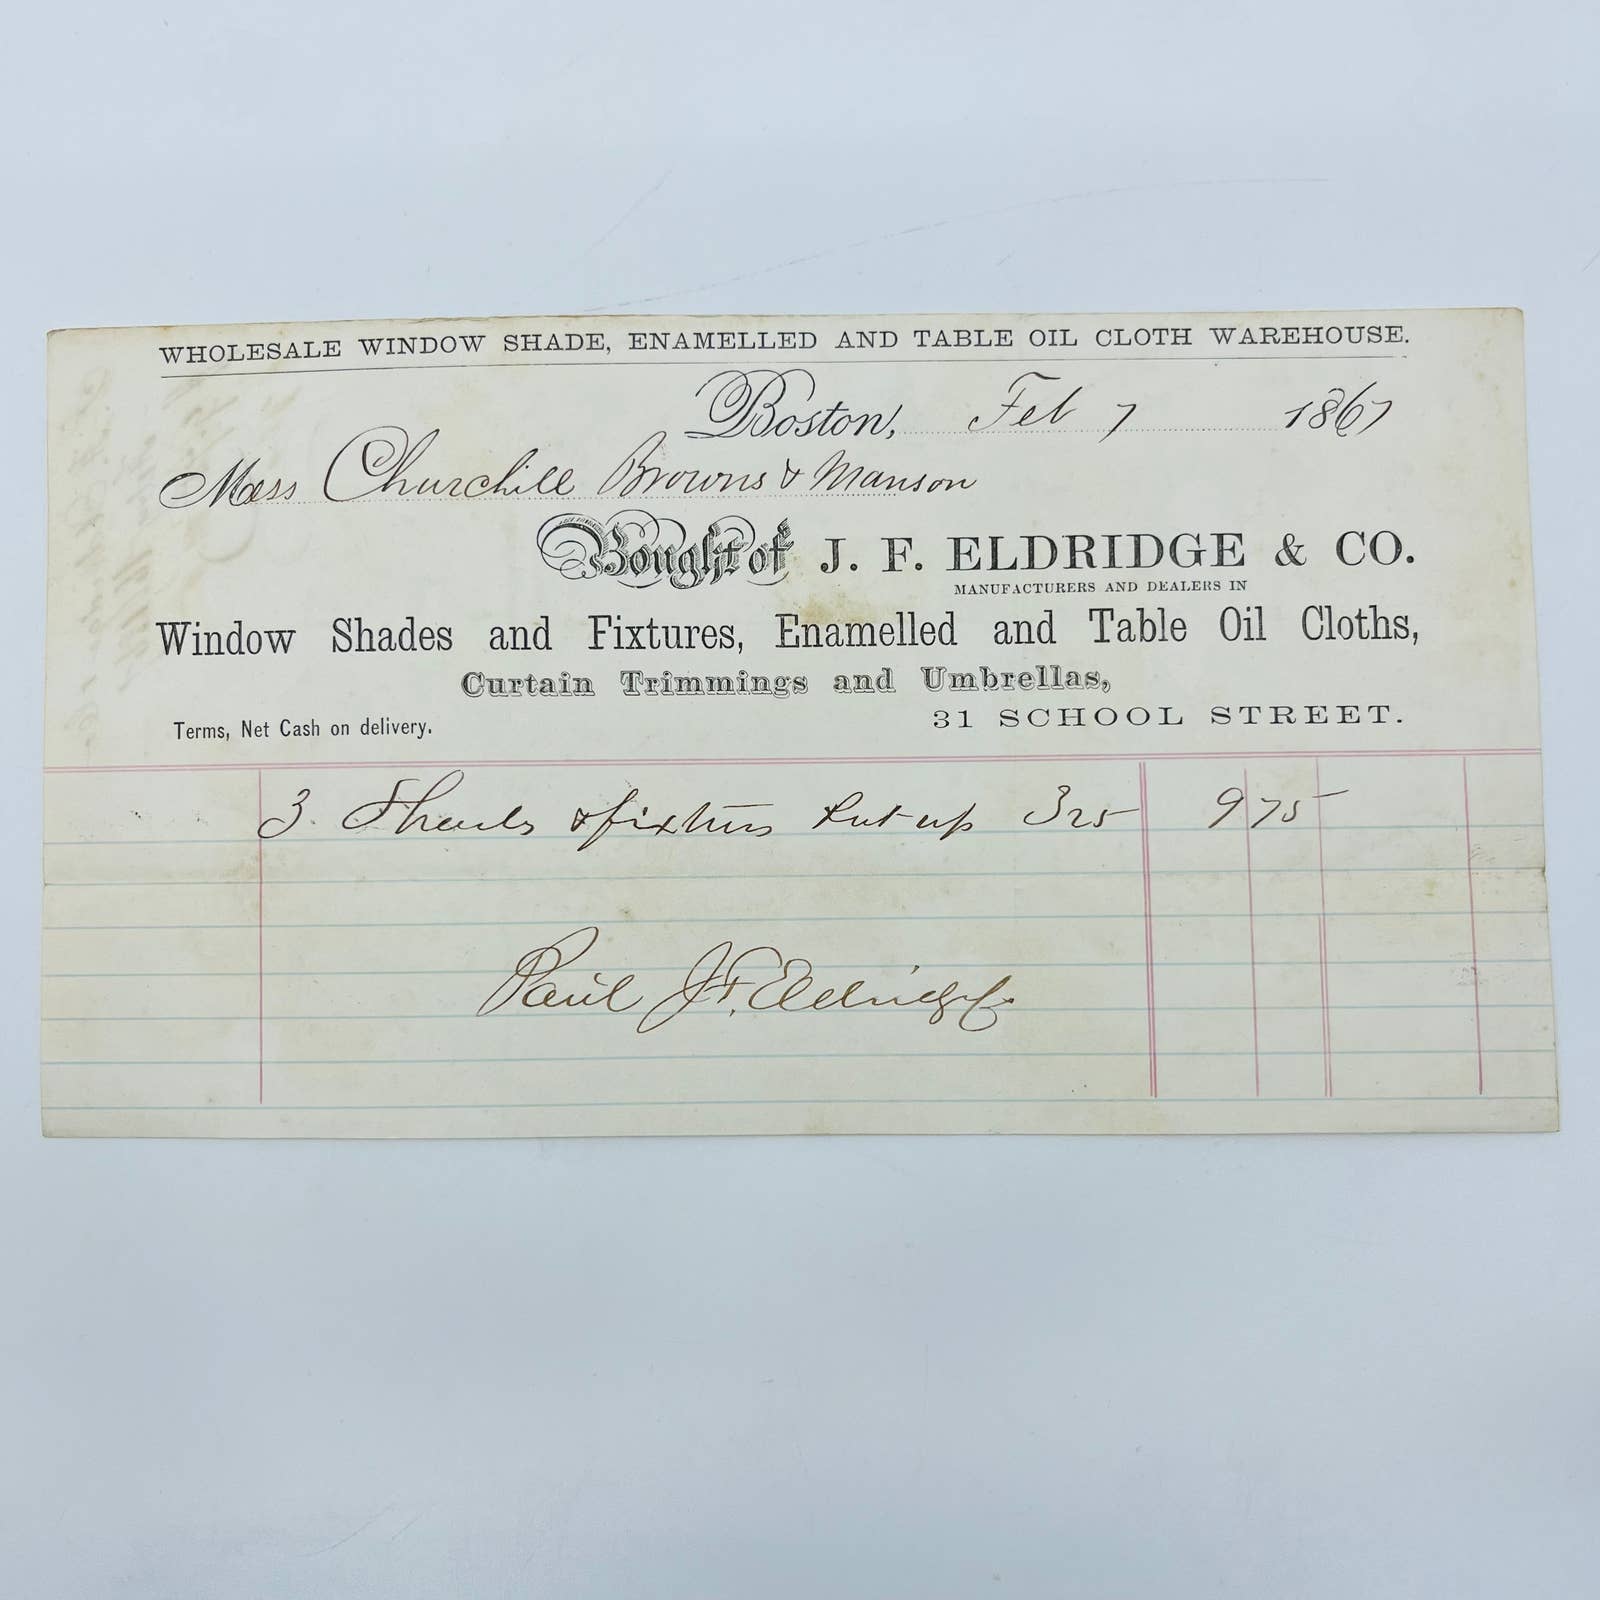 WHOLESALE WINDOW SHADE, ENAMELLED AND TABLE OIL CLOTH WAREHOUSE.
Boston, Feb 7 1867
Mess Churchill Browns & Manson
Bought of J. F. ELDRIDGE & CO.
MANUFACTURERS AND DEALERS IN
Window Shades and Fixtures, Enamelled and Table Oil Cloths,
Curtain Trimmings and Umbrellas,
Terms, Net Cash on delivery. 31 SCHOOL STREET.
3 Shades & fixtures put up 325 9 75
Paid J. F. Eldridge